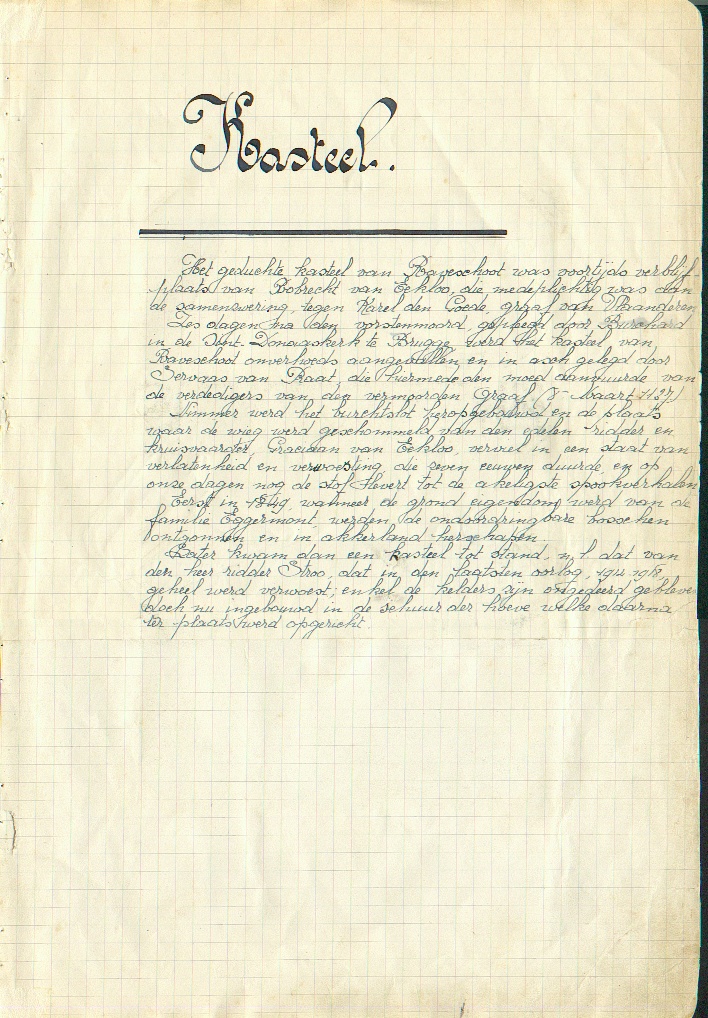 Kasteel.
Het geduchte kasteel van Raveschoot was voortijds verblijf
plaats van Robrecht van Eekloo, die medeplichtig was aan
de samenswering, tegen Karel den Goede, graaf van Vlaanderen
Zes dagen na den vorstenmoord, gepleegd door Burchard
in de Sint-Donaaskerk te Brugge, werd het kasteel van
Raveschoot onverhoeds aangevallen en in asch gelegd door
Servaas van Praat, die hiermede den moed aanvuurde van
de verdedigers van den vermoorden Graaf, 8- baart 1127)
Nimmer werd het burchtslot heropgebouwd en de plaats
waar de wieg werd geschommeld van den edelen ridder en
kruisvaarder Graciaan van Eekloo, verviel in een staat van
verlatenheid en verwoesting, die zeven eeuwen duurde, en op
onze dagen nog de stof levert tot de akeligste spookverhalen
Eerst in 1849, wanneer de grond eigendom werd van de
familie Eggermont, werden, de ondoordringbare bosschen
ontgonnen en in akkerland herschapen.
Later kwam dan een kasteel tot stand, n, l dat van
den heer ridder Stroo, dat in den laatsten oorlog, 1914 1918,
geheel werd verwoest; enkel de kelders zijn ongedeerd gebleven
doch nu ingebouwd in de schuur der hoeve welke daarna
ter plaats werd opgericht.